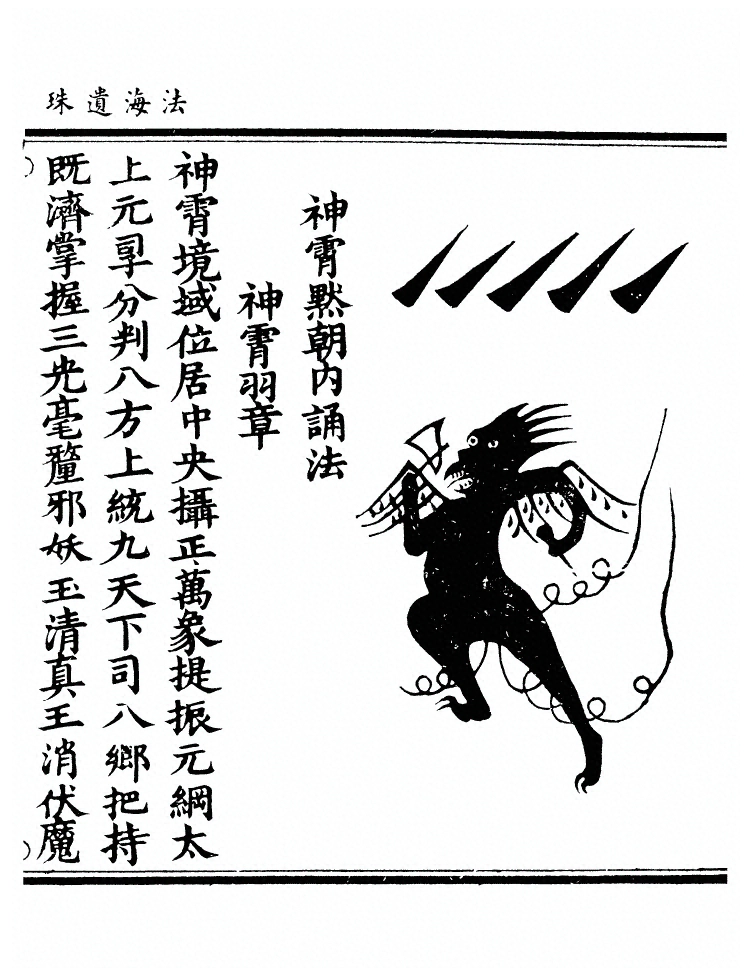 法海遺珠
神霄默朝內誦法
神霄羽章
神霄境域位居中央攝正萬象提振元綱太
上元罡分判八方上統九天下司八鄉把持
既濟掌握三光毫釐邪妖玉清真王消伏魔